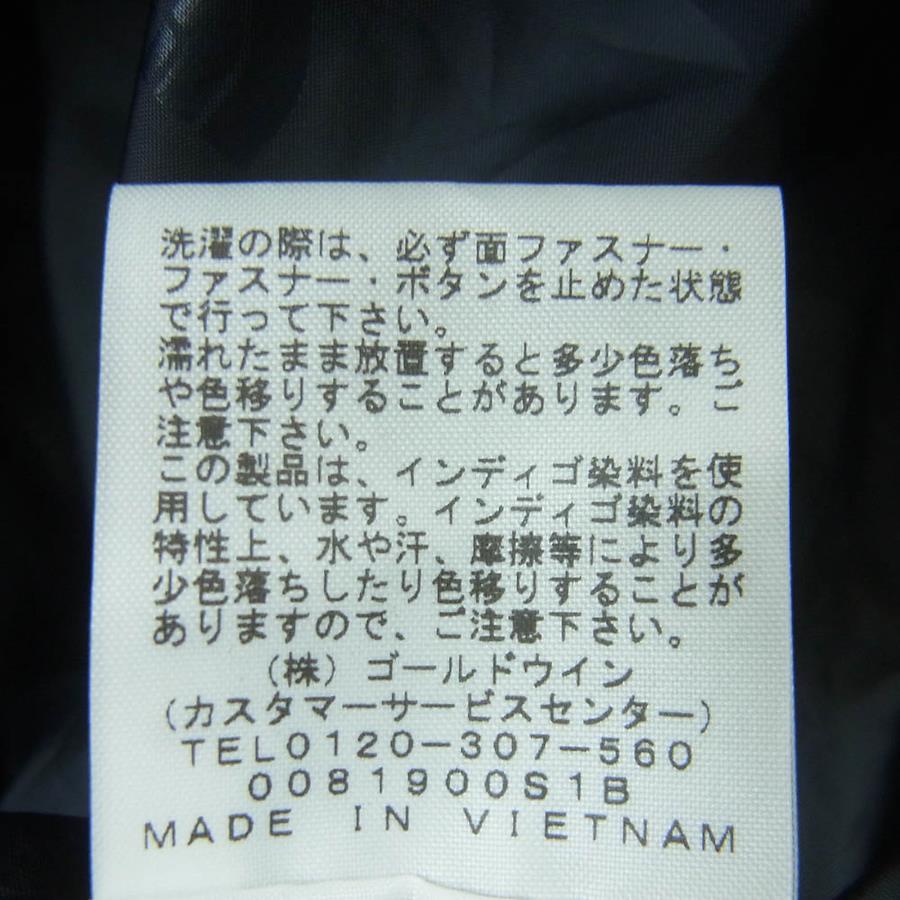 洗濯の際は、必ず面ファスナー・
ファスナー・ボタンを止めた状態
で行って下さい。
濡れたまま放置すると多少色落ち
や色移りすることがあります。ご
注意下さい。
この製品は、インディゴ染料を使
用しています。インディゴ染料の
特性上、水や汗、摩擦等により多
少色落ちしたり色移りすることが
ありますので、ご注意下さい。
(株)ゴールドウイン
(カスタマーサービスセンター)
TEL0120-307-560
0081900S1B
MADE IN VIETNAM